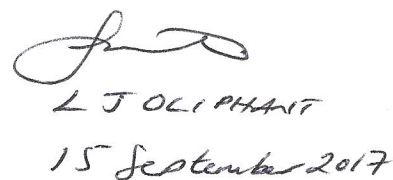 L J OLIPHANT
15 September 2017